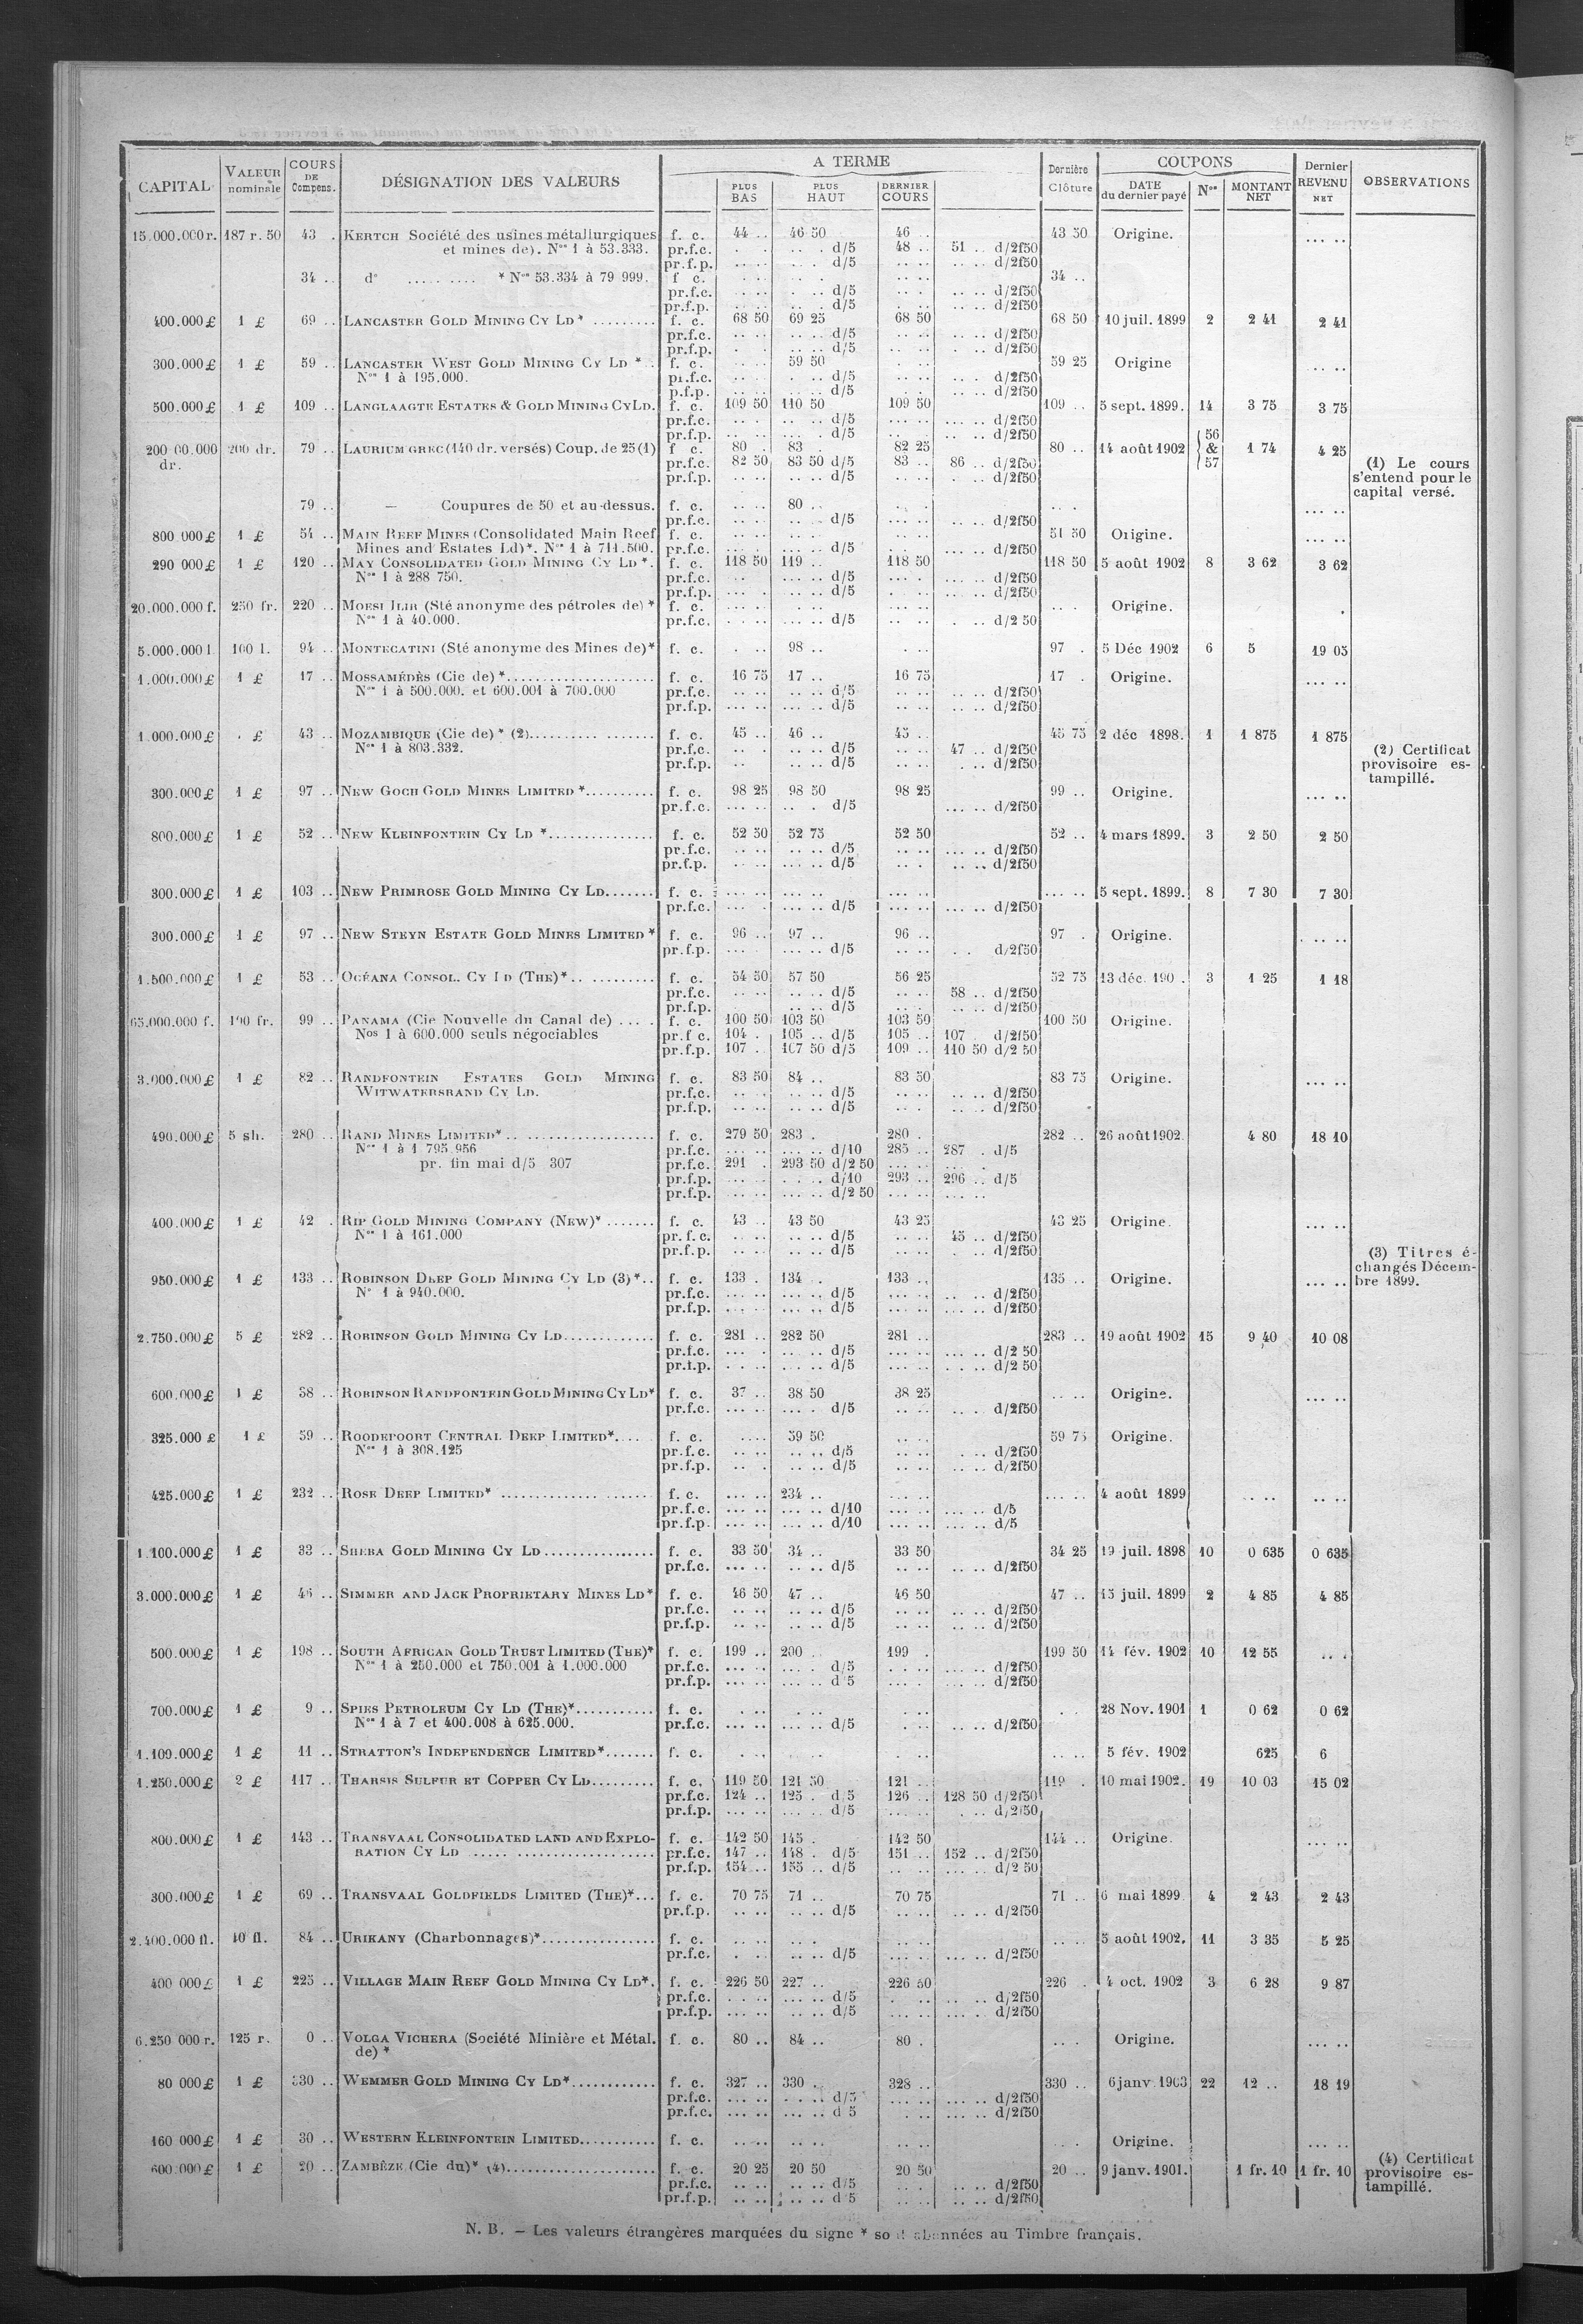 CAPITAL VALEUR nominale COURS DE Compens. DÉSIGNATION DES VALEURS A TERME Dernière Clôture COUPONS Dernier REVENU NET OBSERVATIONS
PLUS BAS PLUS HAUT DERNIER COURS DATE du dernier payé Nos MONTANT NET
15.000.000 r. 187 r. 50 43 . KERTCH Société des usines métallurgiques f. c. 44 .. 46 50 46 .. 43 50 Origine. ... ..
et mines de). Nos 1 à 53.333. pr.f.c. . . .. . d/5 48 .. 51 .. d/2f50
pr.f.p. .. .. .. . d/5 .. .. .. .. d/2f50
34 .. d° ..... .... * Nos 53.334 à 79 999. f c. 34 ..
pr.f.c. .. .. .. . d/5 .. .. .. .. d/2f50
pr.f.p. .. .. .. . d/5 . .. .. .. d/2f50
400.000 £ 1 £ 69 .. LANCASTER GOLD MINING CY LD* ......... f. c. 68 50 69 25 68 50 68 50 10 juil. 1899 2 2 41 2 41
pr.f.c. .. . .. .. d/5 .. .. .. .. d/2f50
pr.f.p. . . .. .. d/5 .. . .. .. d/2f50
300.000 £ 1 £ 59 .. LANCASTER WEST GOLD MINING CY LD *.. f. c. 59 50 59 25 Origine ... ..
Nos 1 à 195.000. pr.f.c. .. .. . .. d/5 .. .. .. . d/2f50
p.f.p. .. .. .. .. d/5 .. .. .. .. d/2f50
500.000 £ 1 £ 109 .. LANGLAAGTE ESTATES & GOLD MINING CY LD. f. c. 109 50 110 50 109 50 109 .. 5 sept. 1899. 14 3 75 3 75
pr.f.c. .. .. .. .. d/5 .. .. ... .. d/2f50
pr.f.p. .. .. ... . d/5 .. .. .. .. d/2f50
200 00.000 dr. 200 dr. 79 .. LAURIUM GREC (140 dr. versés) Coup. de 25 (1) f c. 80 . 83 . 82 25 80 .. 14 août 1902 56 & 57 1 74 4 25
pr.f.c. 82 50 83 50 d/5 83 .. 86 .. d/2f50
pr.f.p. .. .. .. .. d/5 .. .. . .. d/2f50
(1) Le cours
s'entend pour le
capital versé.
79 .. — Coupures de 50 et au-dessus. f. c. 80 .. ... ..
pr.f.c. .. .. .. .. d/5 .. .. d/2f50
800 000 £ 1 £ 54 .. MAIN REEF MINES (Consolidated Main Reef f. c. 51 50 Origine. ... ..
Mines and Estates Ld)*. Nos 1 à 711.500. pr.f.c. ... . ... .. d/5 . .. ... .. d/2f50
290 000 £ 1 £ 120 .. MAY CONSOLIDATED GOLD MINING CY LD *. f. c. 118 50 119 .. 118 50 118 50 5 août 1902 8 3 62 3 62
Nos 1 à 288 750. pr.f.c. .. ... .. d/5 ... . ... .. d/2f50
pr.f.p. ... . ... .. d/5 . .. ... .. d/2f50
20.000.000 f. 250 fr. 220 .. MOESI ILIR (Sté anonyme des pétroles de) * f. c. Origine.
Nos 1 à 40.000. pr.f.c. ... .. d/5 . .. d/2 50
5.000.000 l. 100 l. 94 .. MONTECATINI (Sté anonyme des Mines de)* f. c. 98 .. 97 . 5 Déc 1902 6 5 19 05
1.000.000 £ 1 £ 17 .. MOSSAMÉDÈS (Cie de) *.................... f. c. 16 75 17 .. 16 75 17 . Origine. ... ..
Nos 1 à 500.000. et 600.001 à 700.000 pr.f.c. .. .. .. .. d/5 .. .. .. .. d/2f50
pr.f.p. .. .. .. .. d/5 .. .. .. .. d/2f50
1.000.000 £ . £ 43 .. MOZAMBIQUE (Cie de) * (2).......... ....... f. c. 45 .. 46 .. 45 .. 45 75 2 déc 1898. 1 1 875 1 875
Nos 1 à 803.332. pr.f.c. .. . .. .. d/5 .. .. 47 .. d/2f50
pr.f.p. .. .. .. d/5 .. .. . .. d/2f50
(2) Certificat
provisoire es-
tampillé.
300.000 £ 1 £ 97 .. NEW GOCH GOLD MINES LIMITED *.......... f. c. 98 25 98 50 98 25 99 .. Origine. ... ..
pr.f.c. ... .. .. . d/5 ... .. d/2f50
800.000 £ 1 £ 52 .. NEW KLEINFONTEIN CY LD *............... f. c. 52 50 52 75 52 50 52 .. 4 mars 1899. 3 2 50 2 50
pr.f.c. .. .. .. .. d/5 .. .. ... .. d/2f50
pr.f.p. .. .. .. .. d/5 .. . .. .. d/2f50
300.000 £ 1 £ 103 .. NEW PRIMROSE GOLD MINING CY LD....... f. c. ... .. ... .. ... .. ... .. 5 sept. 1899. 8 7 30 7 30
pr.f.c. ... . ... .. d/5 ... .. ... .. d/2f50
300.000 £ 1 £ 97 .. NEW STEYN ESTATE GOLD MINES LIMITED * f. c. 96 .. 97 .. 96 .. 97 . Origine. . .. ..
pr.f.p. ... ... .. d/5 .. . . d/2f50
1.500.000 £ 1 £ 53 .. OCÉANA CONSOL. CY LD (THE)*.. .......... f. c. 54 50 57 50 56 25 52 75 13 déc. 190 . 3 1 25 1 18
pr.f.c. .. .. .. .. d/5 .. . 58 .. d/2f50
pr.f.p. .. .. .. .. d/5 .. .. .. .. d/2f50
65.000.000 f. 100 fr. 99 .. PANAMA (Cie Nouvelle du Canal de) ... . f. c. 100 50 103 50 103 50 100 50 Origine.
Nos 1 à 600.000 seuls négociables pr.f c. 104 . 105 .. d/5 105 .. 107 . d/2f50
pr.f.p. 107 . 107 50 d/5 109 .. 110 50 d/2 50
3.000.000 £ 1 £ 82 .. RANDFONTEIN ESTATES GOLD MINING f. c. 83 50 84 .. 83 50 83 75 Origine. ... ..
WITWATERSRAND CY LD. pr.f.c. .. . .. .. d/5 .. . .. .. d/2f50
pr.f.p. .. .. .. .. d/5 .. . .. .. d/2f50
490.000 £ 5 sh. 280 .. RAND MINES LIMITED*.. ................... f. c. 279 50 283 . 280 . 282 .. 26 août 1902. 4 80 18 10
Nos 1 à 1 795 956 pr.f.c. ... .. ... .. d/10 285 .. 287 . d/5
pr. fin mai d/5 307 pr.f.c. 291 . 293 50 d/2 50 ... .. ... .
pr.f.p. ... .. . . .. d/10 293 .. 296 .. d/5
pr.f.p. ... .. ... .. d/2 50 ... .. ... ..
400.000 £ 1 £ 42 . RIP GOLD MINING COMPANY (NEW)* ....... f. c. 43 .. 43 50 43 25 43 25 Origine. ... ..
Nos 1 à 161.000 pr. f. c. .. . .. .. d/5 .. .. 45 .. d/2f50
pr.f.p. .. .. .. .. d/5 .. .. . .. d/2f50
(3) Titres é-
changés Décem-
bre 1899.
950.000 £ 1 £ 133 .. ROBINSON DEEP GOLD MINING CY LD (3)*.. f. c. 133 . 134 . 133 .. 135 .. Origine. ... ..
N° 1 à 940.000. pr.f.c. ... .. ... .. d/5 ... .. .. .. d/2f50
pr.f.p. ... .. ... .. d/5 ... .. ... .. d/2f50
2.750.000 £ 5 £ 282 .. ROBINSON GOLD MINING CY LD............. f. c. 281 .. 282 50 281 .. 283 .. 19 août 1902 15 9 40 10 08
pr.f.c. ... . . .. .. d/5 ... .. ... .. d/2 50
pr.f.p. . .. . ... .. d/5 ... .. . . .. d/2 50
600.000 £ 1 £ 38 .. ROBINSON RANDFONTEIN GOLD MINING CY LD* f. c. 37 .. 38 50 38 25 .. .. Origine. ... ..
pr.f.c. ... .. ... . d/5 .. .. .. . d/2f50
325.000 £ 1 £ 59 .. ROODEPOORT CENTRAL DEEP LIMITED*.... f. c. 59 50 59 75 Origine.
Nos 1 à 308.125 pr.f.c. .. . .. .. d/5 .. .. . .. d/2f50
pr.f.p. .. . .. .. d/5 .. .. .. .. d/2f50
425.000 £ 1 £ 232 .. ROSE DEEP LIMITED* .................... f. c. ... .. 234 .. ... .. 4 août 1899 .. .. .. ..
pr.f.c. ... .. ... .. d/10 ... .. ... .. d/5
pr.f.p. ... .. ... .. d/10 ... .. ... .. d/5
1.100.000 £ 1 £ 33 .. SHEBA GOLD MINING CY LD ............... f. c. 33 50 34 .. 33 50 34 25 19 juil. 1898 10 0 635 0 635
pr.f.c. ... .. .. .. d/5 .. .. .. .. d/2f50
3.000.000 £ 1 £ 46 .. SIMMER AND JACK PROPRIETARY MINES LD* f. c. 46 50 47 .. 46 50 47 .. 15 juil. 1899 2 4 85 4 85
pr.f.c. .. .. .. .. d/5 .. .. .. .. d/2f50
pr.f.p. .. .. .. .. d/5 .. .. .. .. d/2f50
500.000 £ 1 £ 198 .. SOUTH AFRICAN GOLD TRUST LIMITED (THE)* f. c. 199 .. 200 199 . 199 50 14 fév. 1902 10 12 55 .. .
Nos 1 à 250.000 et 750.001 à 1.000.000 pr.f.c. ... .. ... . d/5 . . .. ... .. d/2f50
pr.f.p. ... .. ... .. d 5 ... .. ... .. d/2f50
700.000 £ 1 £ 9 .. SPIES PETROLEUM CY LD (THE)*........... f. c. 28 Nov. 1901 1 0 62 0 62
Nos 1 à 7 et 400.008 à 625.000. pr.f.c. ... .. ... .. d/5 . .. .. .. d/2f50
1.100.000 £ 1 £ 11 .. STRATTON'S INDEPENDENCE LIMITED*....... f. c. 5 fév. 1902 625 6
1.250.000 £ 2 £ 117 .. THARSIS SULFUR ET COPPER CY LD......... f. c. 119 50 121 50 121 .. 119 . 10 mai 1902. 19 10 03 15 02
pr.f.c. 124 .. 125 . d/5 126 .. 128 50 d/2f50
pr.f.p. ... .. ... .. d/5 ... .. . .. d/2f50
800.000 £ 1 £ 143 .. TRANSVAAL CONSOLIDATED LAND AND EXPLO- f. c. 142 50 145 . 142 50 144 .. Origine. ... ..
RATION CY LD ..... .................... pr.f.c. 147 .. 148 . d/5 151 .. 152 .. d/2f50
pr.f.p. 154 .. 155 .. d/5 .. .. ... .. d/2 50
300.000 £ 1 £ 69 .. TRANSVAAL GOLDFIELDS LIMITED (THE)*... f. c. 70 75 71 .. 70 75 71 .. 6 mai 1899. 4 2 43 2 43
pr.f.p. .. .. .. .. d/5 .. .. .. .. d/2f50
2.400.000 fl. 40 fl. 84 .. URIKANY (Charbonnages)*................ f. c. 5 août 1902. 11 3 35 5 25
pr.f.c. . .. .. d/5 ... .. d/2f50
400 000 £ 1 £ 225 .. VILLAGE MAIN REEF GOLD MINING CY LD*. f. c. 226 50 227 .. 226 50 226 . 4 oct. 1902 3 6 28 9 87
pr.f.c. . .. .. ... .. d/5 . .. .. .. d/2f50
pr.f.p. ... .. ... .. d/5 ... .. ... .. d/2f50
6.250 000 r. 125 r. 0 .. VOLGA VICHERA (Société Minière et Métal. f. c. 80 .. 84 .. 80 . Origine. ... ..
de) *
80 000 £ 1 £ 330 .. WEMMER GOLD MINING CY LD*............ f. c. 327 .. 330 .. 328 .. 330 .. 6 janv 1903 22 12 .. 18 19
pr.f.c. ... .. . . .. d/5 ... .. ... .. d/2f50
pr.f.c. ... .. ... .. d 5 . .. ... .. d/2f50
160 000 £ 1 £ 30 .. WESTERN KLEINFONTEIN LIMITED........... f. c. Origine. ... ..
600 000 £ 1 £ 20 .. ZAMBÈZE (Cie du)* (4).................... f. c. 20 25 20 50 20 50 20 .. 9 janv. 1901. 1 fr. 10 1 fr. 10
pr.f.c. .. .. .. .. d/5 .. . .. .. d/2f50
pr.f.p. .. .. .. .. d 5 .. .. .. .. d/2f50
(4) Certificat
provisoire es-
tampillé.
N. B. — Les valeurs étrangères marquées du signe * so t ab nnées au Timbre français.